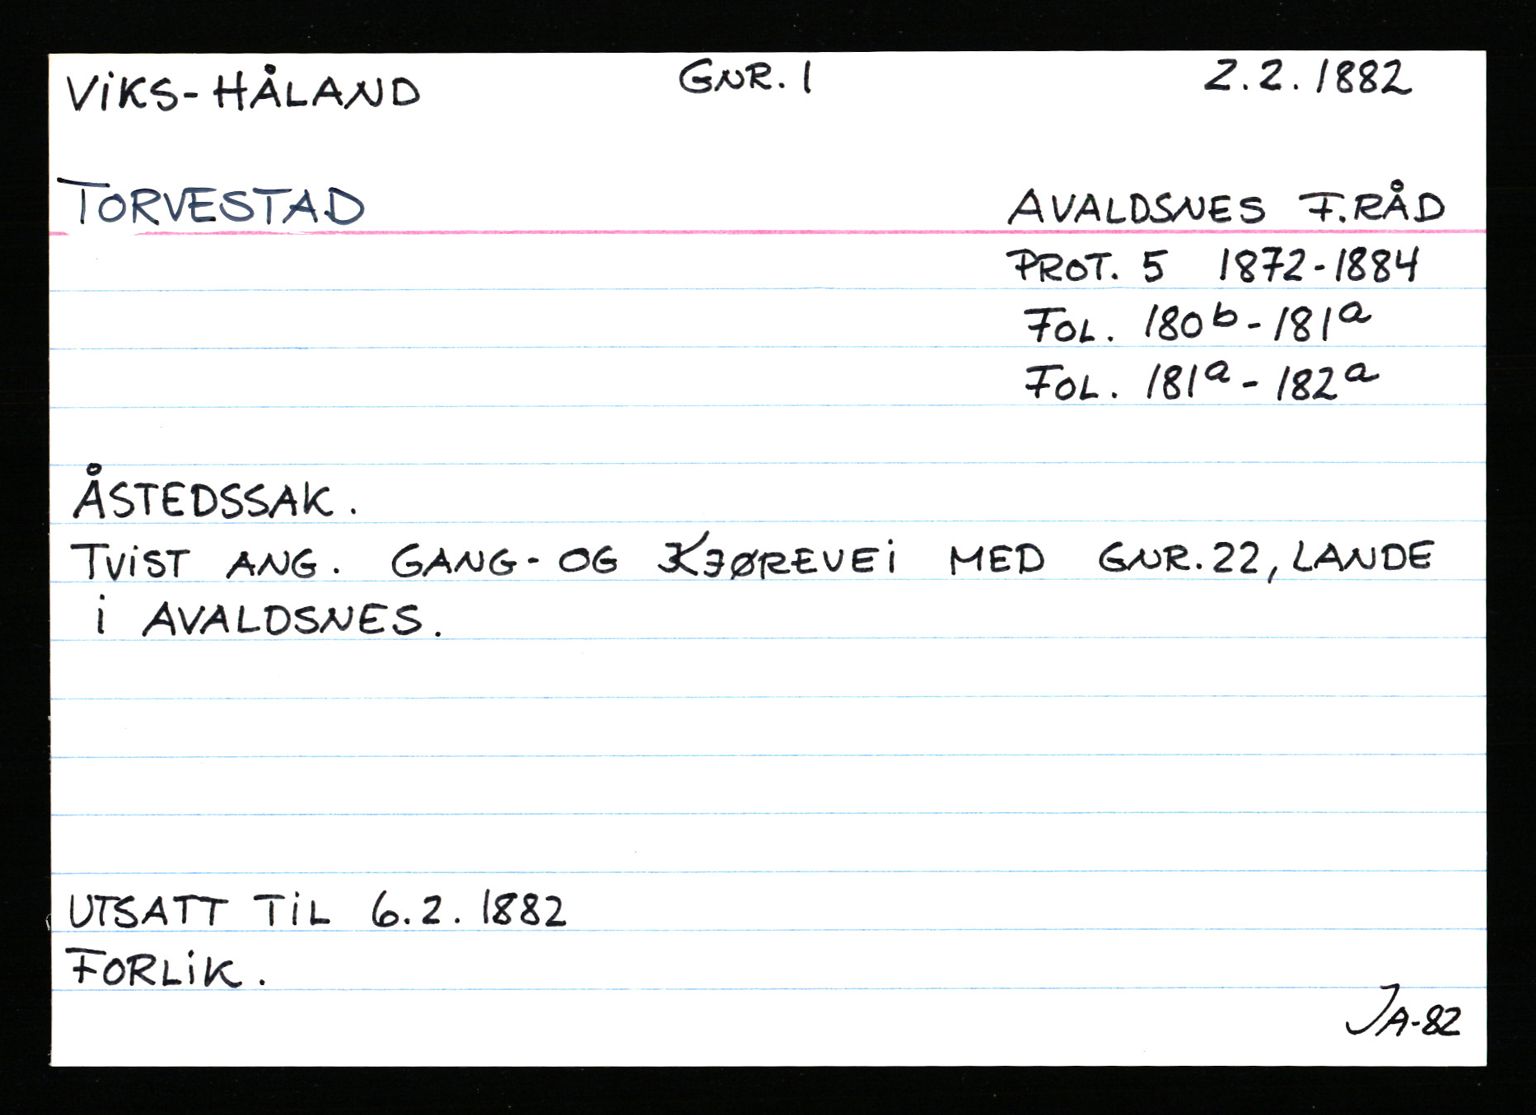 VIKS-HÅLAND GNR. 1 2.2.1882
TORVESTAD AVALDSNES F.RÅD
PROT. 5 1872-1884
FOL. 180b-181a
FOL. 181a-182a
ÅSTEDSSAK.
TVIST ANG. GANG- OG KJØREVEI MED GNR. 22, LANDE
I AVALDSNES.
UTSATT TIL 6.2.1882
FORLIK.
JA-82